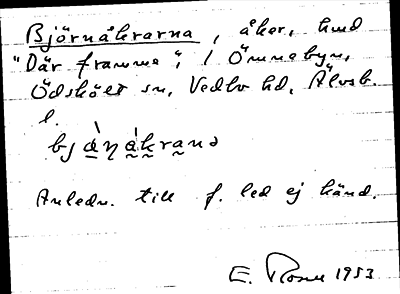 Björnåkrarna, åker,
"Där framme", i Ömmebyn,
Ödskölt sn, Vedbo hd, Älvsb.
l.
Anledn. till f. led ej känd.
E. 1953